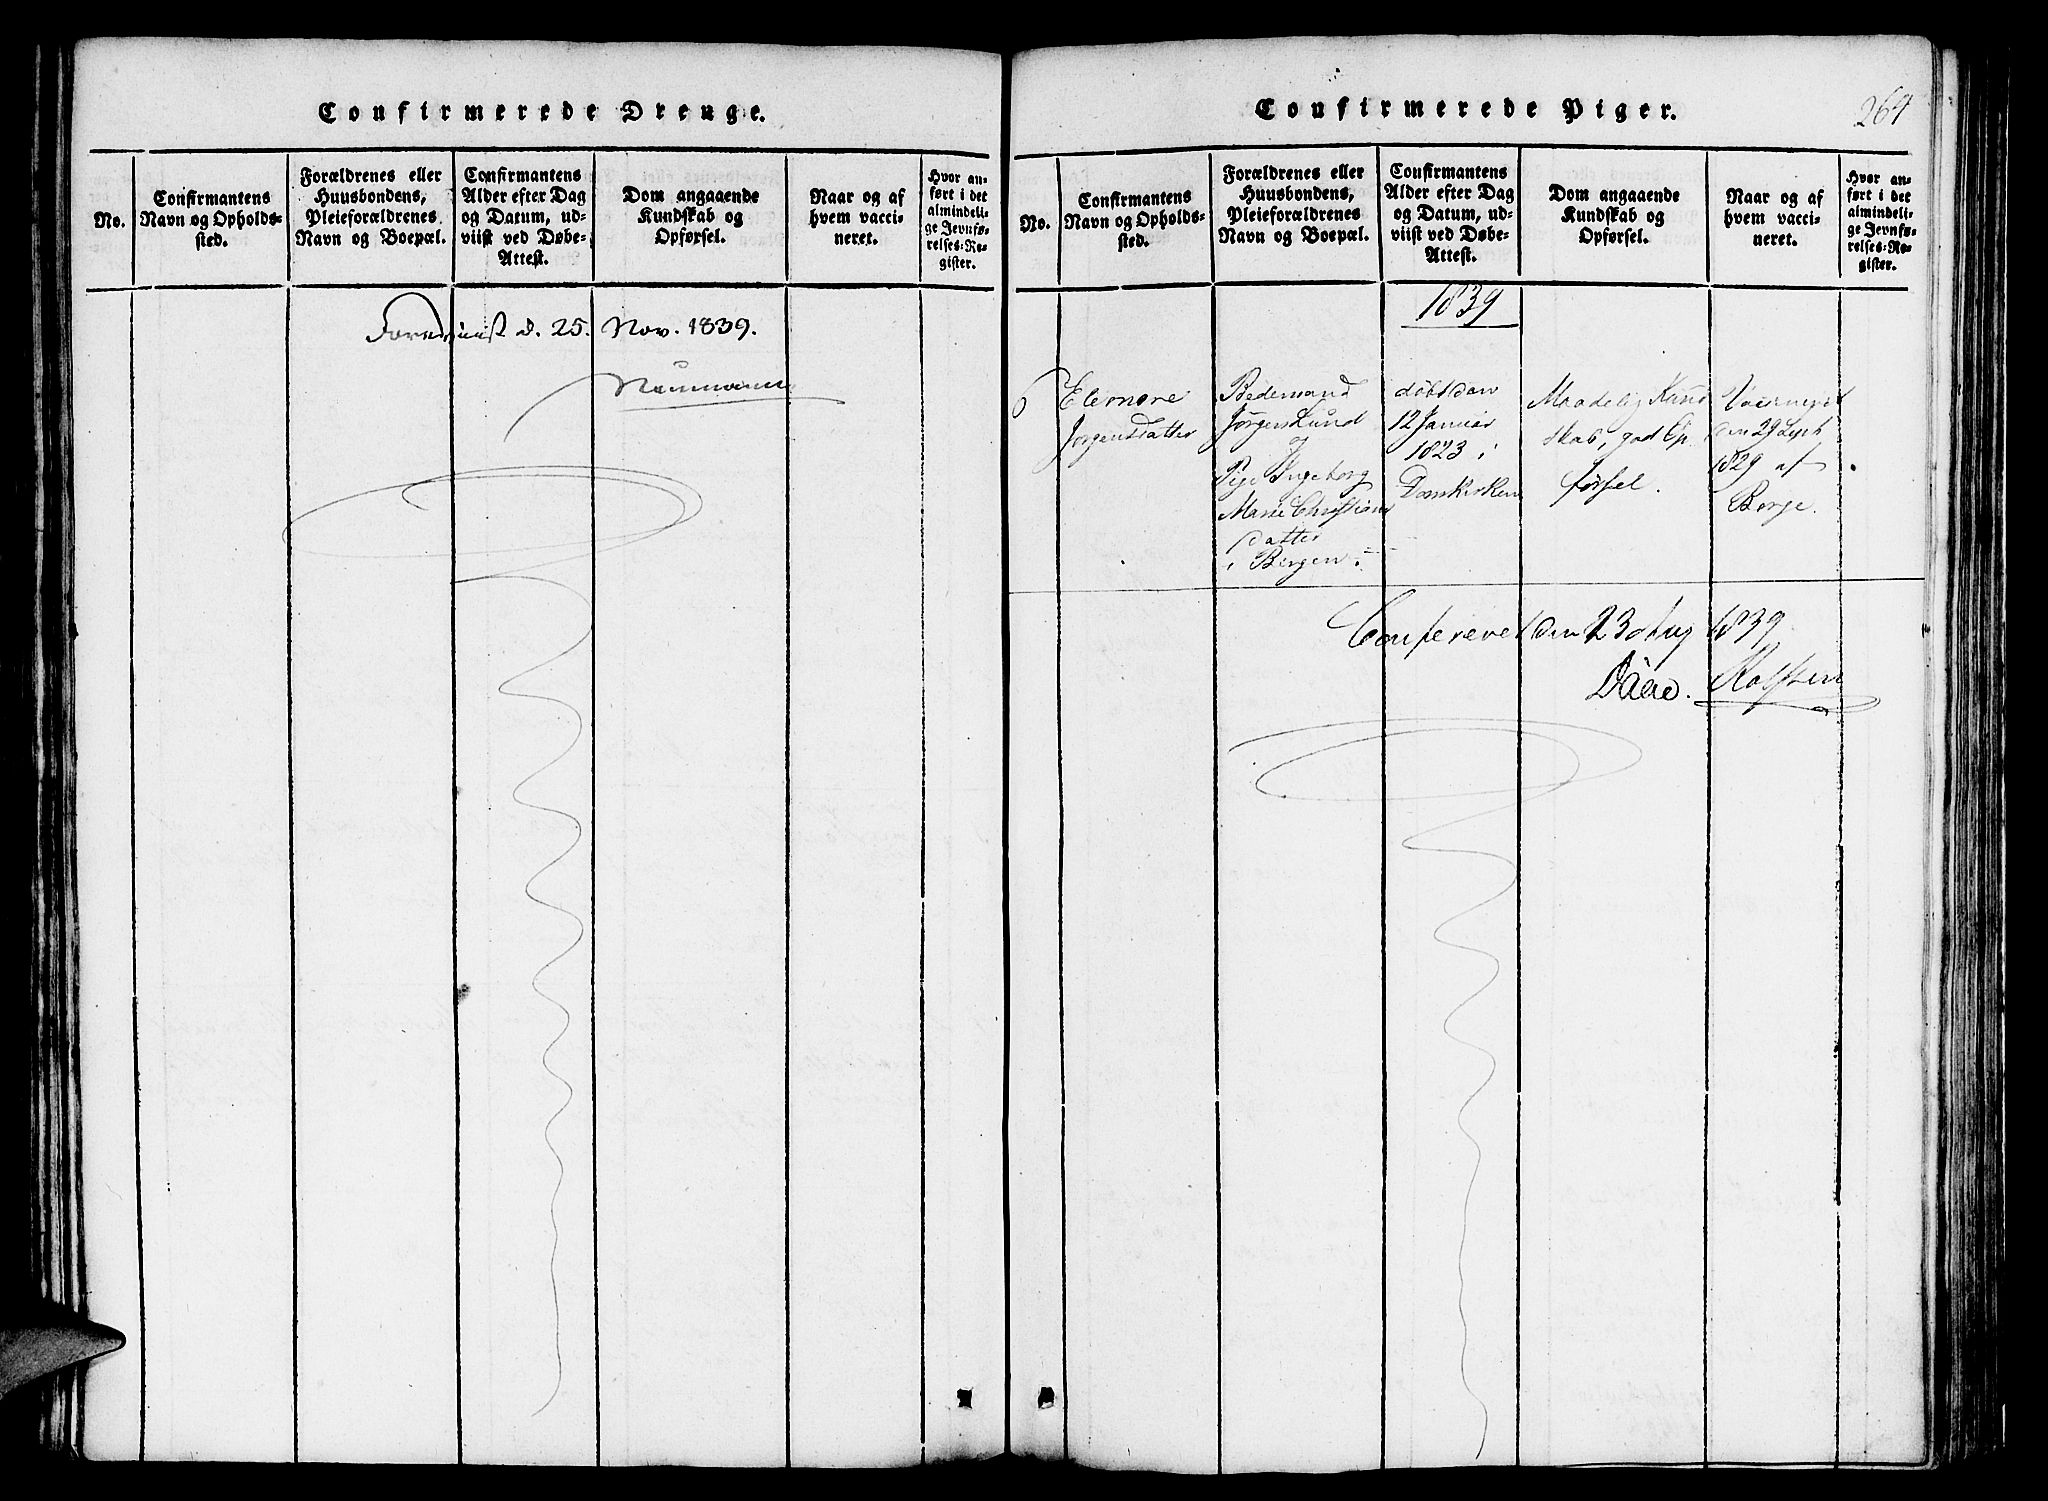 Confirmerede Drenge.
No.
Confirmantens
Navn og Opholds-
sted.
Forældrenes eller
Huusbondens,
Pleieforældrenes
Navn og Boepæl.
Confirmantens
Alder efter Dag
og Datum, ud-
viist ved Døbe-
Attest.
Dom angaaende
Kundskab og
Opførsel.
Naar og af
hvem vacci-
neret.
Hvor an-
ført i det
almindeli-
ge Jevnfø-
relses-Re-
gister.
Foreviist d. 25. Nov. 1839.
Neumann
Confirmerede Piger.
264
No.
Confirmantens
Navn og Opholds-
sted.
Forældrenes eller
Huusbondens,
Pleieforældrenes
Navn og Boepæl.
Confirmantens
Alder efter Dag
og Datum, ud-
viist ved Døbe-
Attest.
Dom angaaende
Kundskab og
Opførsel.
Naar og af
hvem vacci-
neret.
Hvor an-
ført i det
almindeli-
ge Jevnfø-
relses-Re-
gister.
1839
6
Elenore
Jørgensdatter
Bedemand
Jørgen Lund
og
Pige Ingeborg
Marie Christians
datter
i Bergen
døbt den
12 Januar
1823 i
Domkirken
Maadelig Kund
skab, god Op
førsel.
Vaccineret
den 29 Sept
1829 af
Borge.
Confereret den 23 Aug 1839
Daae.